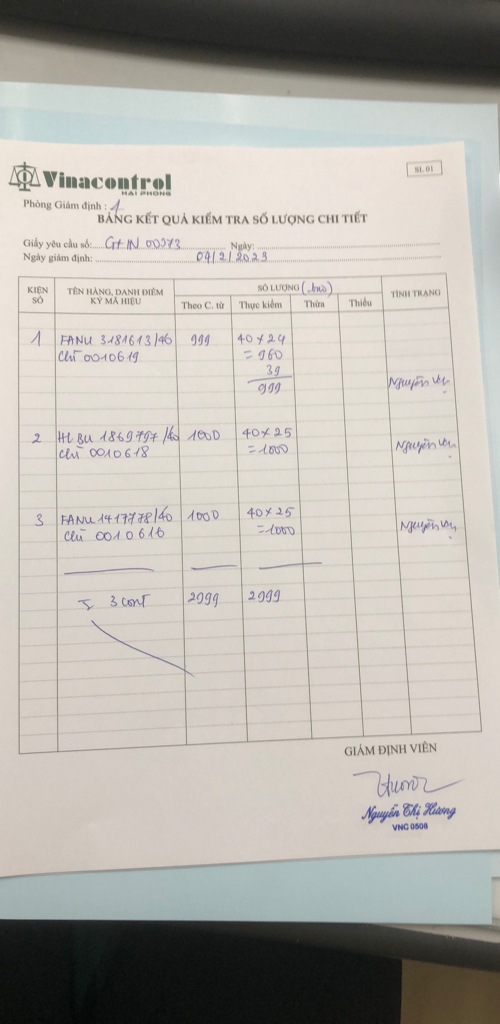 SL 01
Vinacontrol
HAI PHONG
Phòng Giám định : 1
BẢNG KẾT QUẢ KIỂM TRA SỐ LƯỢNG CHI TIẾT
Giấy yêu cầu số: Ngày:
Ngày giám định: 09/2/2023
KIỆN SỐ TÊN HÀNG, DANH ĐIỂM KÝ MÃ HIỆU SỐ LƯỢNG TÌNH TRẠNG
Theo C. từ Thực kiểm Thừa Thiếu
1 FANU 3181613/40 999 40 x 24
Chì 0010619 = 960
39
999
Nguyên vẹn
2 HLBU 1869797/40 1000 40 x 25 Nguyên vẹn
Chì 0010618 = 1000
3 FANU 1417778/40 1000 40 x 25 Nguyên vẹn
Chì 0010616 = 1000
3 cont 2999 2999
GIÁM ĐỊNH VIÊN
Nguyễn Thị Hương
VNC 0506